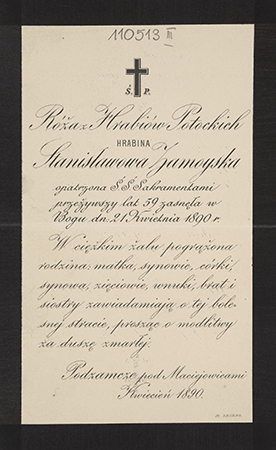 110513 III
Ś. P.
Róża z Hrabiów Potockich
HRABINA
Stanisławowa Zamoyska
opatrzona S.S. Sakramentami
przeżywszy lat 59 zasnęła w
Bogu dn. 21 Kwietnia 1890 r.
W ciężkim żalu pogrążona
rodzina: matka, synowie, córki,
synowa, zięciowie, wnuki, brat i
siostry zawiadamiają o tej bole-
snej stracie, prosząc o modlitwy
za duszę zmarłej.
Podzamcze pod Maciejowicami
Kwiecień 1890.